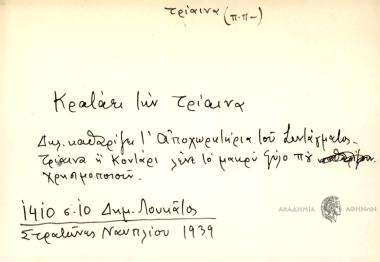 τρίαινα (π.π-)
Κρατάει τὴν τρίαινα
Δηλ. καθαρίζει τ' ἀποχωρητήρια τοῦ Συντάγματος.
Τρίαινα ἢ Κοντάρι λένε τὸ μακρὺ ξύλο ποὺ
χρησιμοποιοῦν.
1410 σ.10 Δημ. Λουκᾶτος
Στρατῶνες Ναυπλίου 1939
ΑΚΑΔΗΜΙΑ ΑΘΗΝΩΝ